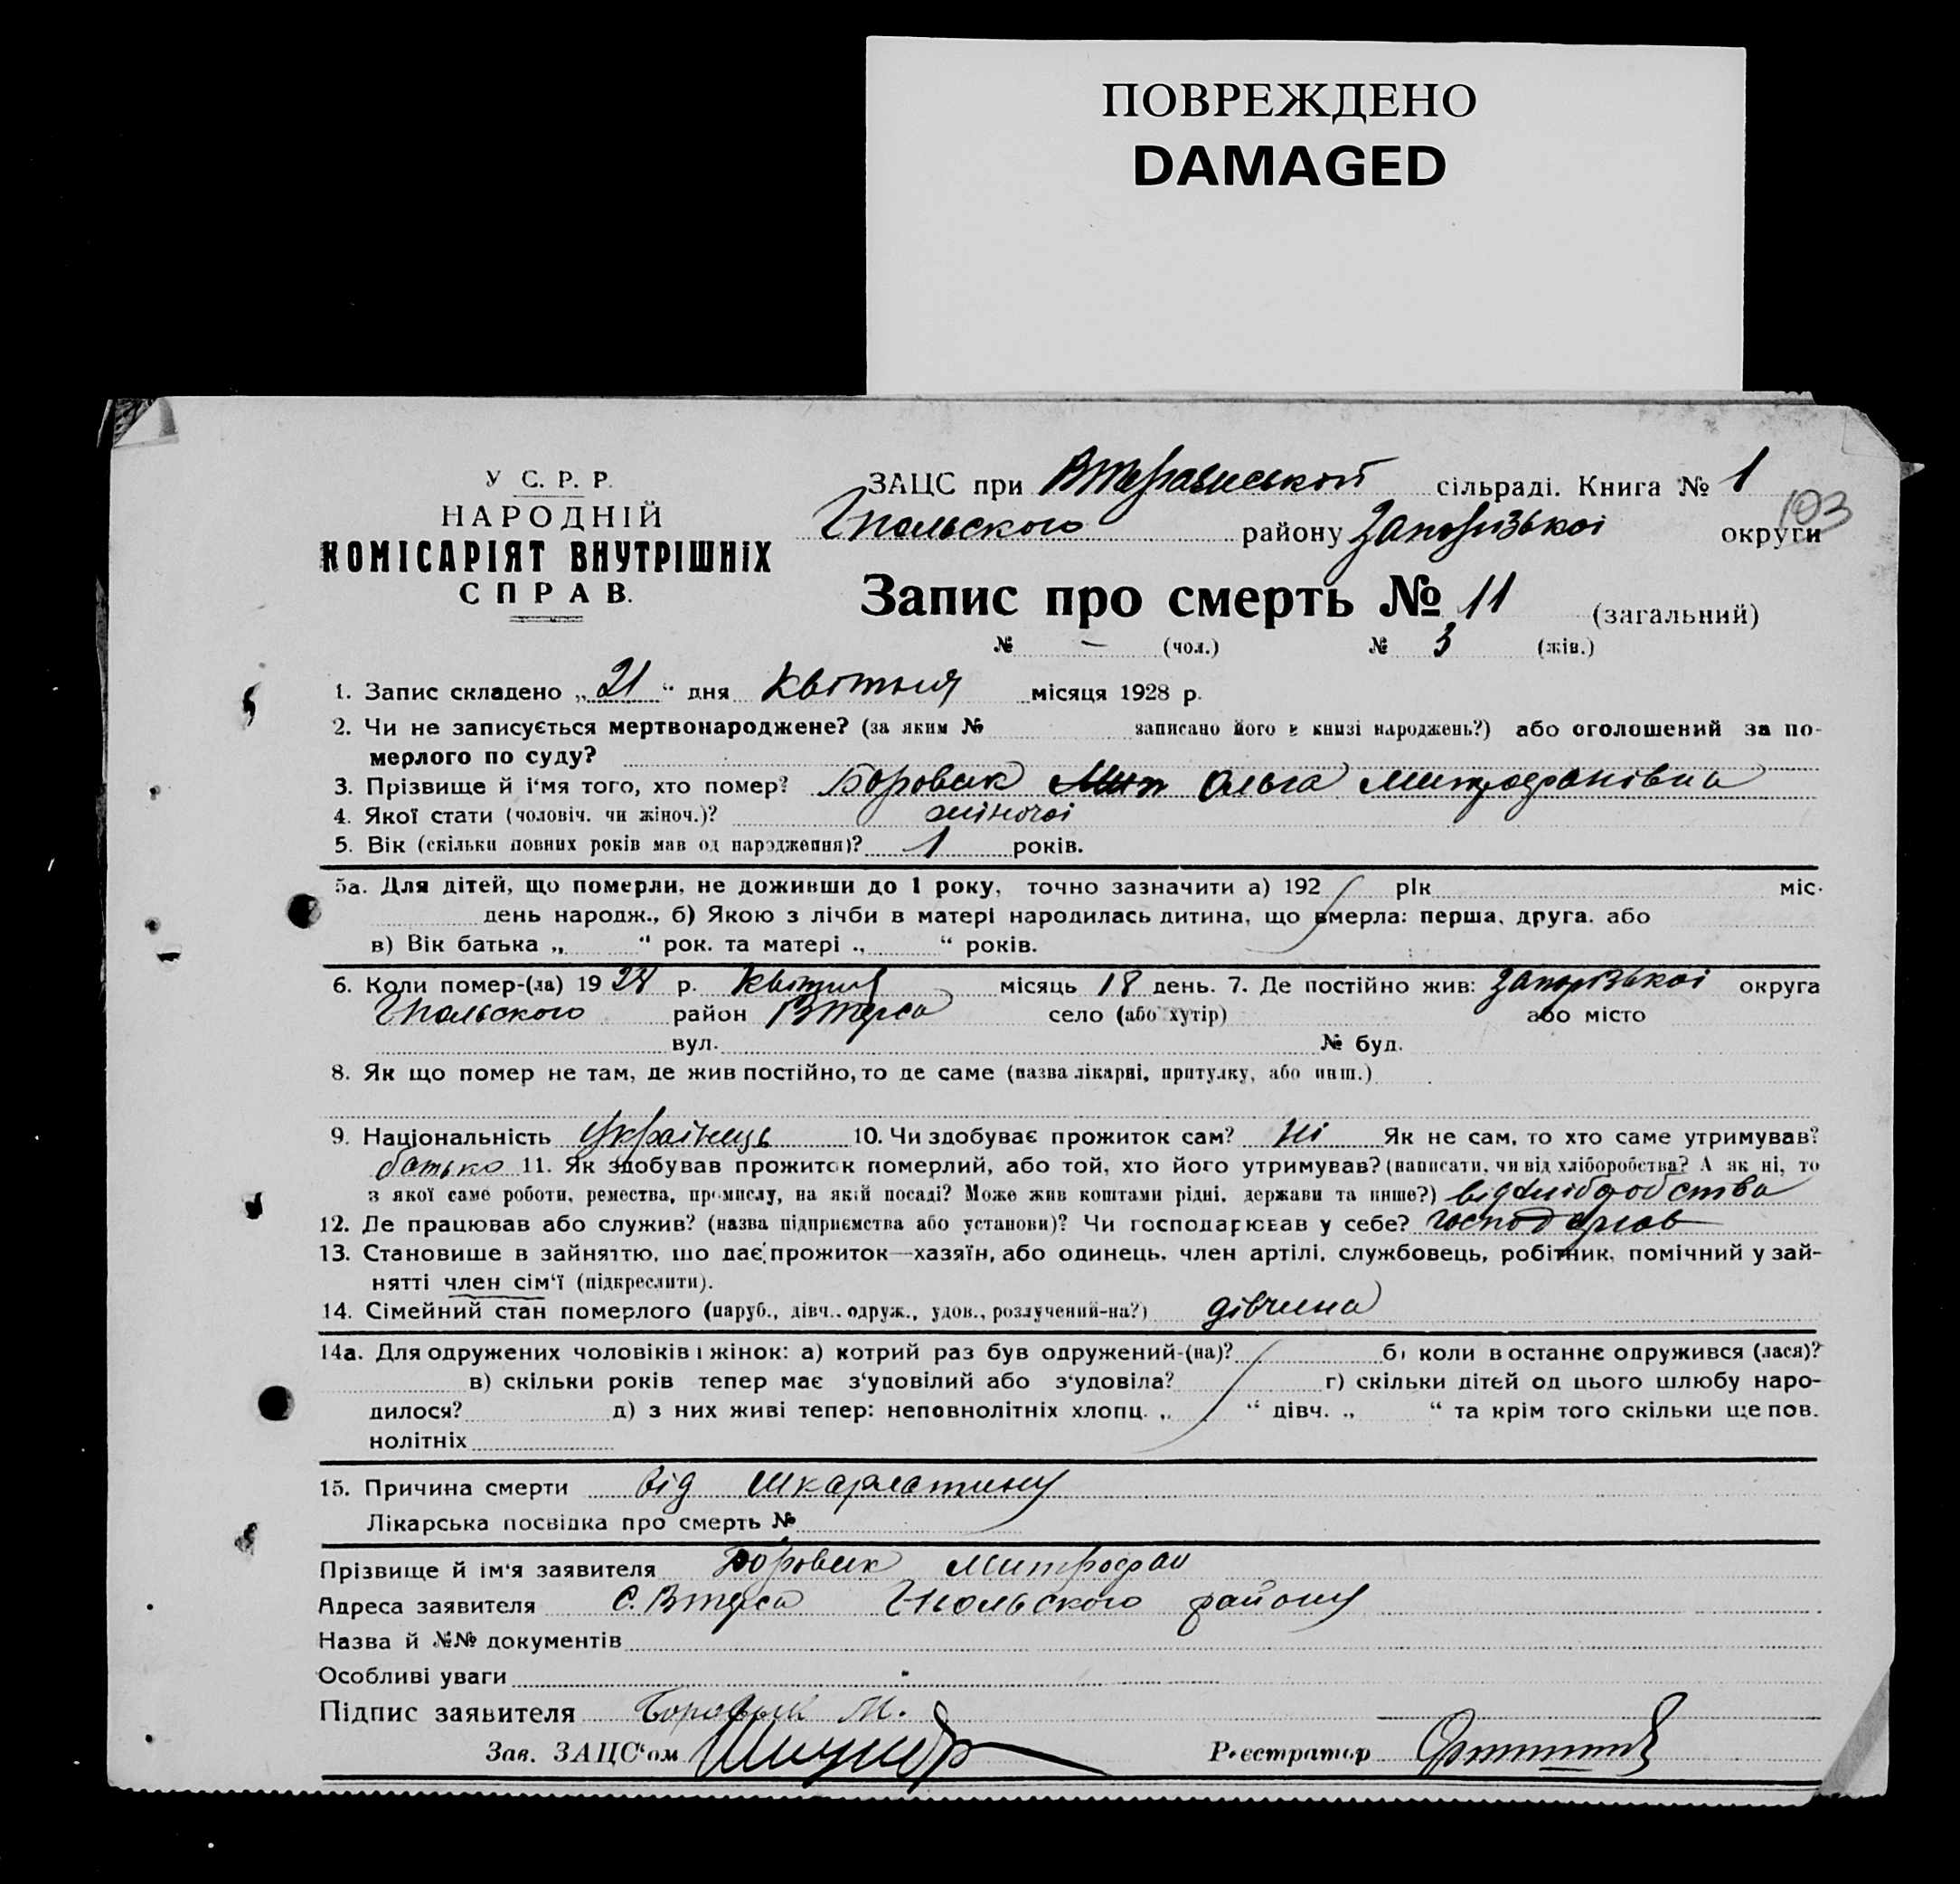 ПОВРЕЖДЕНО
DAMAGED
У С. Р. Р.
НАРОДНІЙ
КОМІСАРІЯТ ВНУТРІШНІХ
СПРАВ.
ЗАЦС при сільраді. Книга № 1
103
району Запорізької округи
Запис про смерть № 11 (загальний)
№ — (чол.) № 3 (жін.)
1. Запис складено „21“ дня квітня місяця 1928 р.
2. Чи не записується мертвонароджене? (за яким № записано його в книзі народжень?) або оголошений за по-
мерлого по суду?
3. Прізвище й і'мя того, хто помер? Боровик Мит Ольга Митрофанівна
4. Якої стати (чоловіч. чи жіноч.)? жіночоі
5. Вік (скільки повних років мав од народження)? 1 років.
5а. Для дітей, що померли, не доживши до 1 року, точно зазначити а) 192 рік міс.
день народж., б) Якою з лічби в матері народилась дитина, що вмерла: перша, друга, або
в) Вік батька „ “ рок. та матері „ “ років.
6. Коли помер-(ла) 1928 р. квітня місяць 18 день. 7. Де постійно жив: Запорізькоі округа
район Втерса село (або хутір) або місто
вул. № буд.
8. Як що помер не там, де жив постійно, то де саме (назва лікарні, притулку, або инш.)
9. Національність Українець 10. Чи здобуває прожиток сам? Ні Як не сам, то хто саме утримував?
батько 11. Як здобував прожиток померлий, або той, хто його утримував? (написати, чи від хліборобства? А як ні, то
з якої саме роботи, ремества, промислу, на якій посаді? Може жив коштами рідні, держави та инше?) від хліборобства
12. Де працював або служив? (назва підприємства або установи)? Чи господарював у себе? господарював
13. Становище в зайняттю, що дає прожиток—хазяїн, або одинець, член артілі, службовець, робітник, помічний у зай-
нятті член сім'ї (підкреслити).
14. Сімейний стан померлого (паруб., дівч., одруж., удов., розлучений-на?) дівчина
14а. Для одружених чоловіків і жінок: а) котрий раз був одружений-(на)? б) коли в останнє одружився (лася)?
в) скільки років тепер має з'удовілий або з'удовіла? г) скільки дітей од цього шлюбу наро-
дилося? д) з них живі тепер: неповнолітніх хлопц. „ “ дівч. „ “ та крім того скільки ще пов.
нолітніх
15. Причина смерти від шкарлатини
Лікарська посвідка про смерть №
Прізвище й ім'я заявителя Боровик Митрофан
Адреса заявителя С. Втерса району
Назва й №№ документів
Особливі уваги
Підпис заявителя Боровык М.
Зав. ЗАЦС'ом Реєстратор